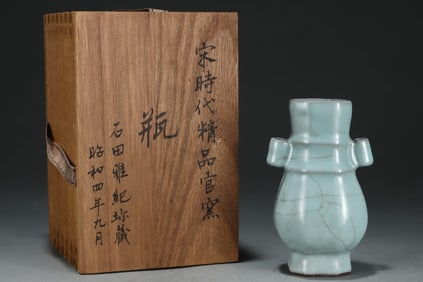 宋時代精品官窯
瓶
石田雅紀珎藏
昭和四年九月